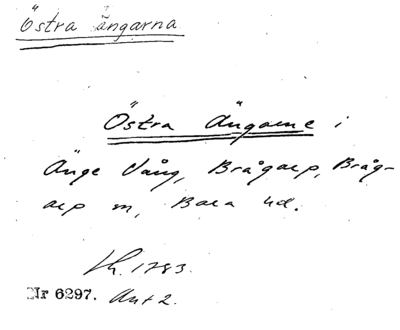 Östra ängarna
Östra Ängarne i
Änge Vång, Brågarp, Bråg-
arp sn, Bara hd.
Lh. 1783.
Nr 6297. Akt 2.